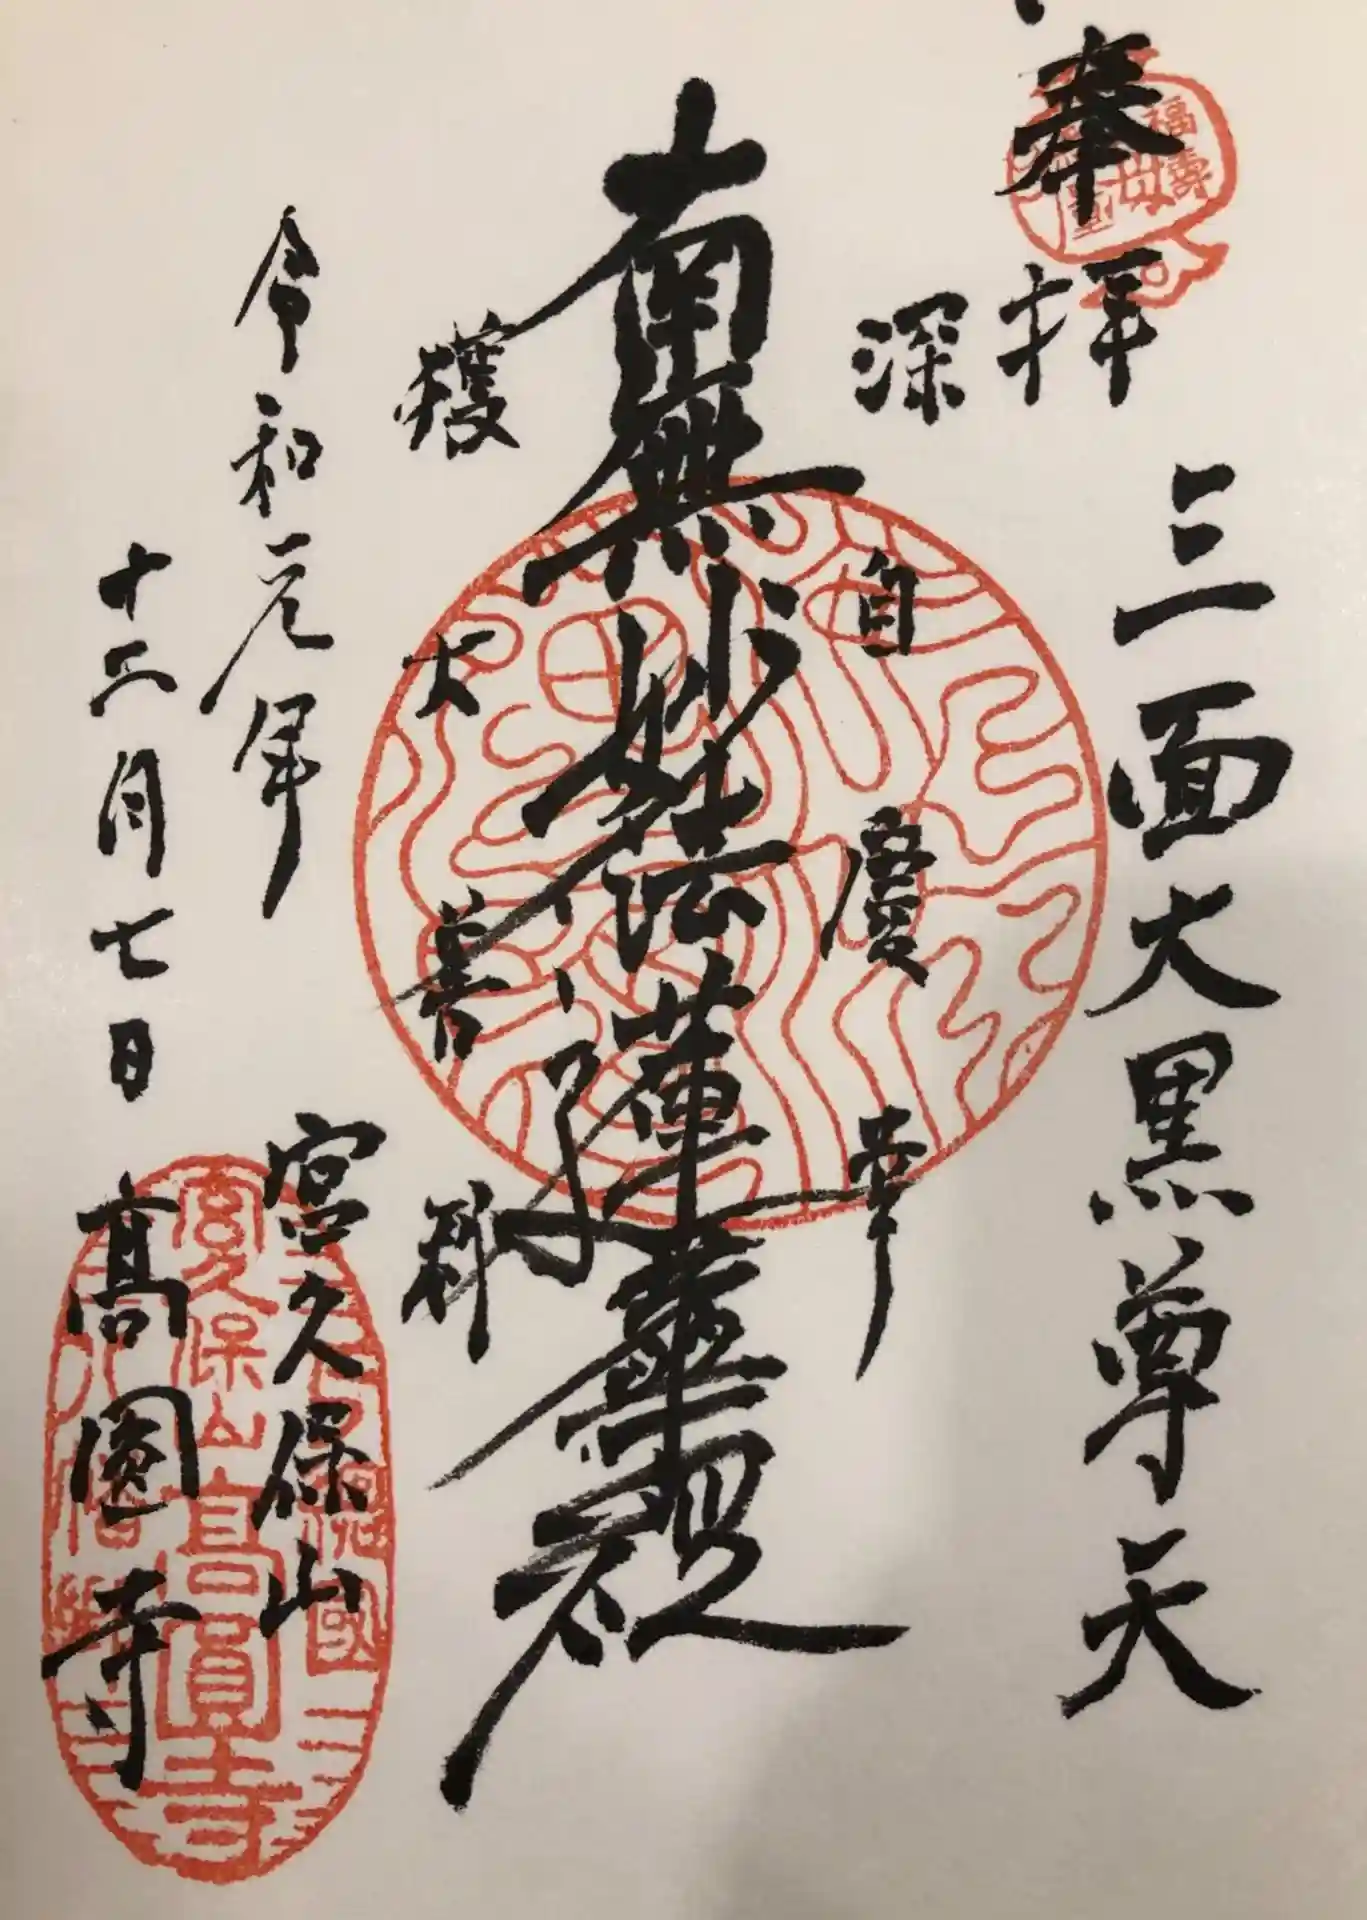 奉拝
三面大黒尊天
深自慶幸
南無妙法蓮華経
獲大善利
令和元年
十二月七日
宮久保山
高圓寺
福壽
宮久保山高圓寺